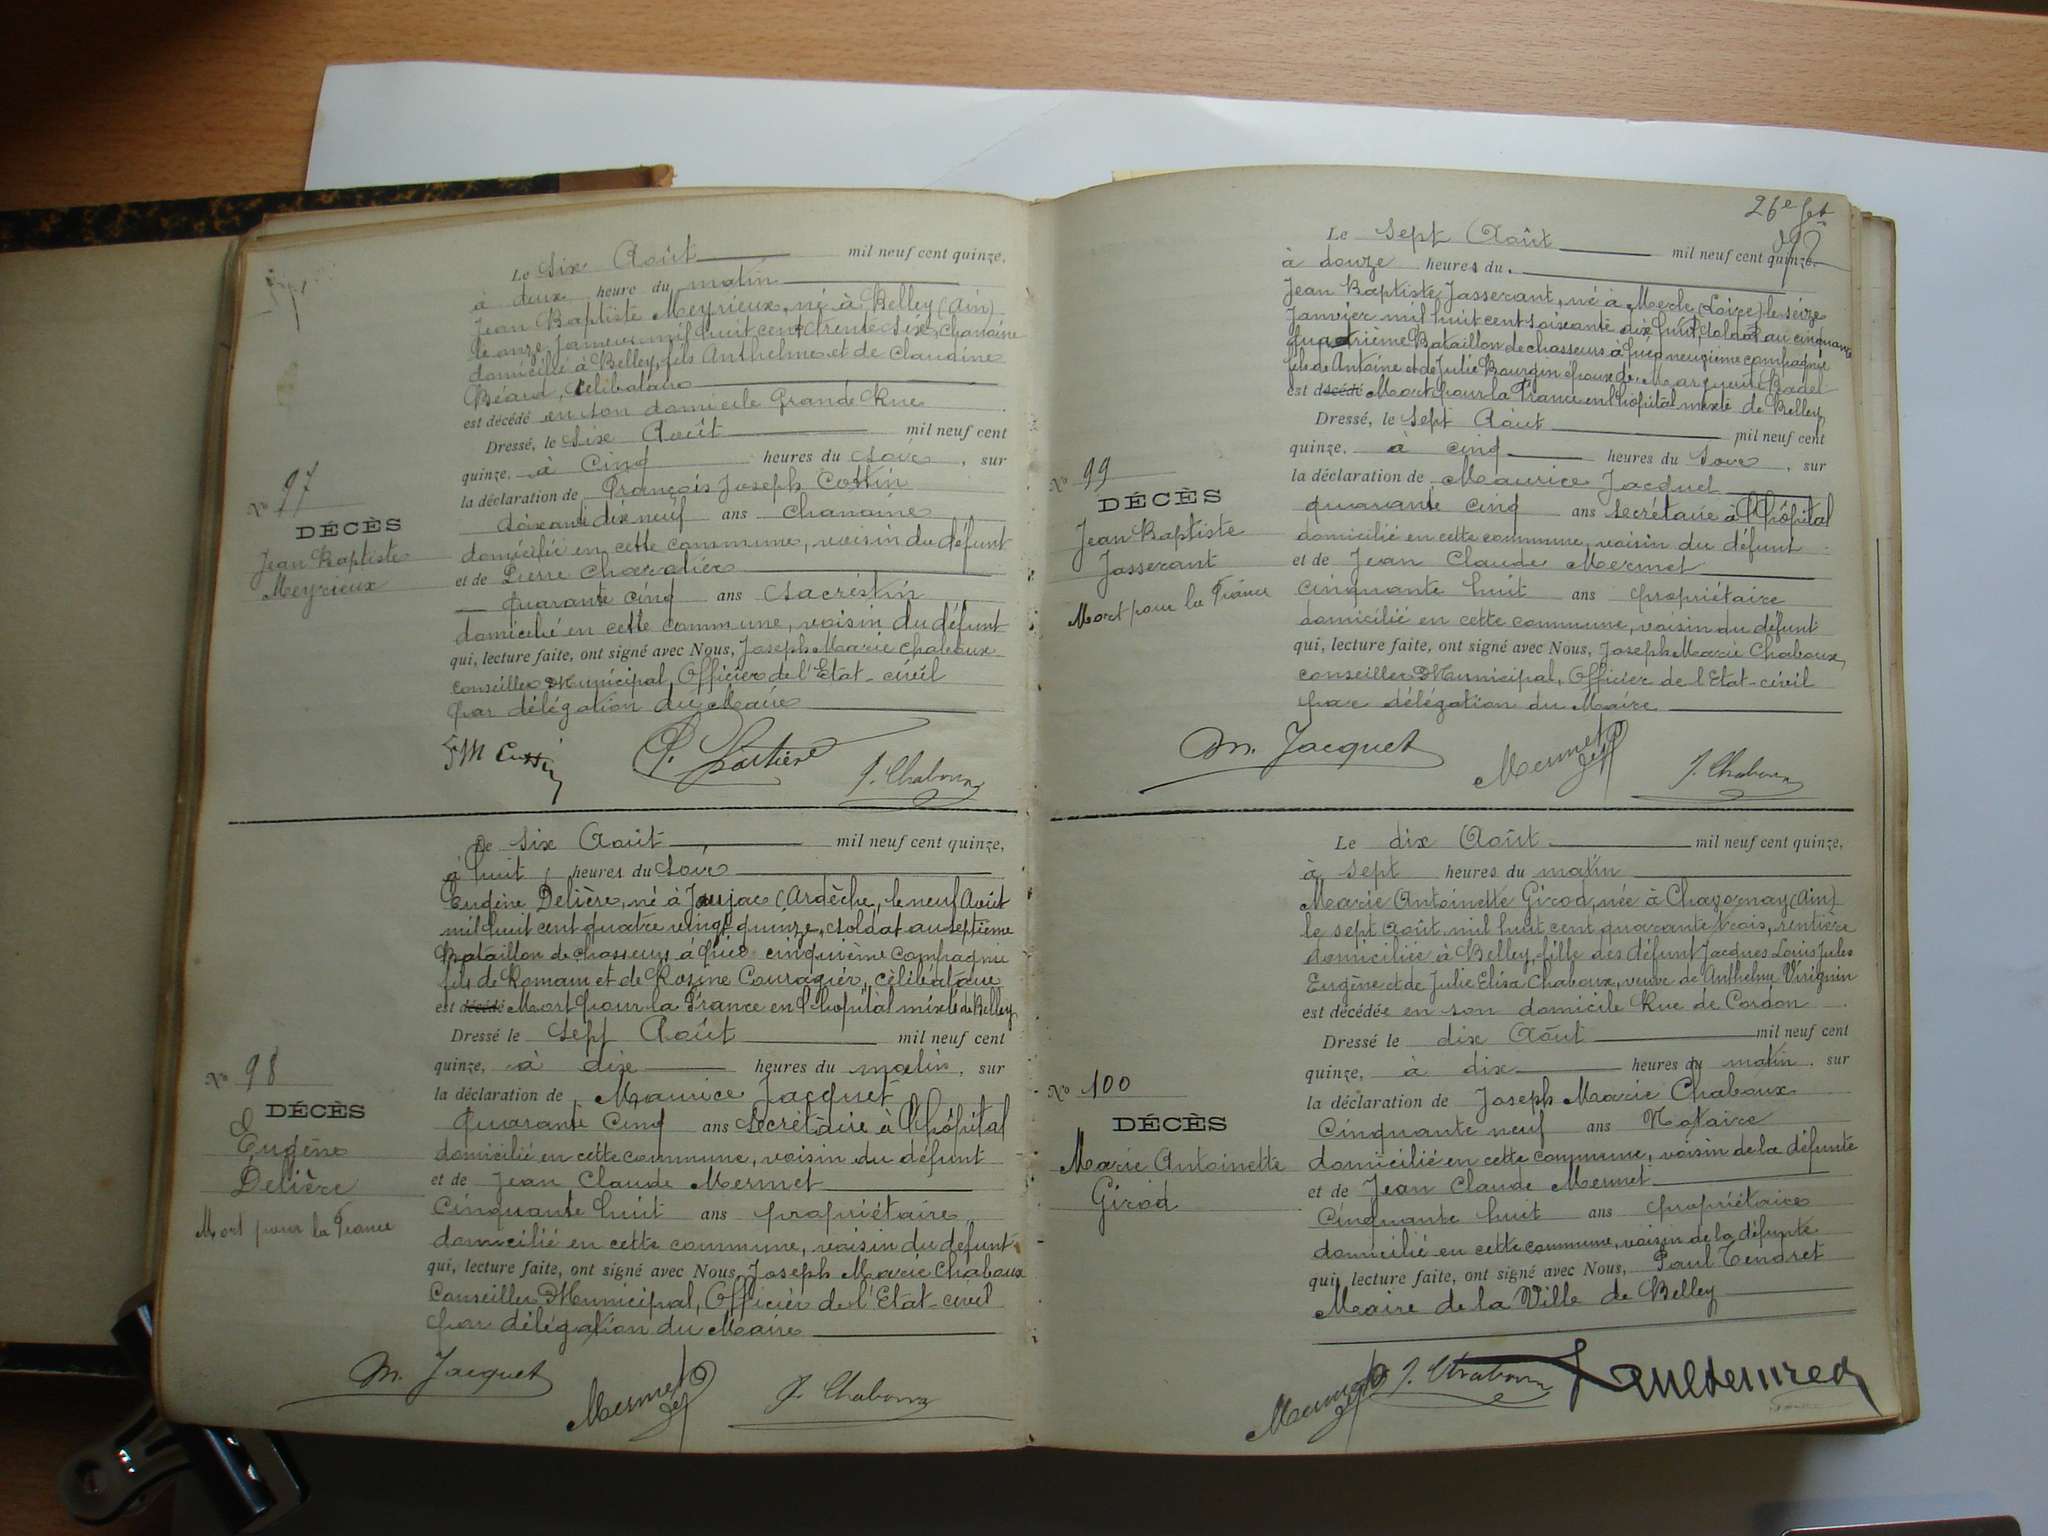 Le Six Août mil neuf cent quinze,
à deux heure du matin
Jean Baptiste Meyrieux, né à Belley (Ain)
le onze Janvier mil huit cent trente six, chanoine
domicilié à Belley, fils Anthelme et de Claudine
Béard, célibataire
est décédé en son domicile Grande Rue
Dressé, le Six Août mil neuf cent
quinze, à Cinq heures du Soir, sur
la déclaration de François Joseph
Soixante dix neuf ans chanoine
domicilié en cette commune, voisin du défunt
et de Pierre
Quarante cinq ans Sacristin
domicilié en cette commune, voisin du défunt
qui, lecture faite, ont signé avec Nous, Joseph Marie Chaboux
conseiller Municipal, Officier de l'Etat-civil
par délégation du Maire
No 97
DÉCÈS
Jean Baptiste
Meyrieux
J. Chaboux
Le Six Août mil neuf cent quinze,
à huit heures du Soir
Eugène Delière, né à Jaujac (Ardèche, le neuf Août
mil huit cent quatre vingt quinze, soldat au septième
Bataillon de chasseurs à pied cinquième compagnie
fils de Romain et de Rosine célibataire
est décédé Mort pour la France en l'hôpital mixte de Belley
Dressé le Sept Août mil neuf cent
quinze, à dix heures du matin, sur
la déclaration de Maurice Jacquet
Quarante Cinq ans Secrétaire à l'hôpital
domicilié en cette commune, voisin du défunt
et de Jean Claude Mermet
Cinquante huit ans propriétaire
domicilié en cette commune, voisin du défunt
qui, lecture faite, ont signé avec Nous, Joseph Marie Chaboux
Conseiller Municipal, Officier de l'Etat-civil
par délégation du Maire
No 98
DÉCÈS
Eugène
Delière
Mort pour la France
M. Jacquet
Mermet
J. Chaboux
26e
Le Sept Août mil neuf cent quinze.
à douze heures du
Jean Baptiste Jasserant, né à Merle (Loire) le seize
Janvier mil huit cent soixante dix huit, soldat au cinquante
quatrième Bataillon de chasseurs à pied neuvième compagnie
fils de Antoine et de Julie Bourgin époux de Marguerite
est décédé Mort pour la France en l'hôpital mixte de Belley
Dressé, le Sept Août mil neuf cent
quinze, à cinq heures du Soir, sur
la déclaration de Maurice Jacquet
quarante cinq ans secrétaire à l'hôpital
domicilié en cette commune, voisin du défunt
et de Jean Claude Mermet
cinquante huit ans propriétaire
domicilié en cette commune, voisin du défunt
qui, lecture faite, ont signé avec Nous, Joseph Marie Chaboux,
conseiller Municipal, Officier de l'Etat-civil
par délégation du Maire
No 99
DÉCÈS
Jean Baptiste
Jasserant
Mort pour la France
M. Jacquet
Mermet
J. Chaboux
Le dix Août mil neuf cent quinze,
à sept heures du matin
Marie Antoinette Girod, née à Chavornay (Ain)
le sept Août mil huit cent quarante trois, rentière
domiciliée à Belley, fille des défunt Jacques Louis Jules
Eugène et de Julie Elisa Chaboux, veuve de Anthelme Virignin
est décédée en son domicile Rue de Cordon
Dressé le dix Août mil neuf cent
quinze, à dix heures du matin, sur
la déclaration de Joseph Marie Chaboux
Cinquante neuf ans Notaire
domicilié en cette commune, voisin de la défunte
et de Jean Claude Mermet
Cinquante huit ans propriétaire
domicilié en cette commune, voisin de la défunte
qui, lecture faite, ont signé avec Nous, Paul Tendret
Maire de la Ville de Belley
No 100
DÉCÈS
Marie Antoinette
Girod
Mermet
J. Chaboux
Paul Tendret